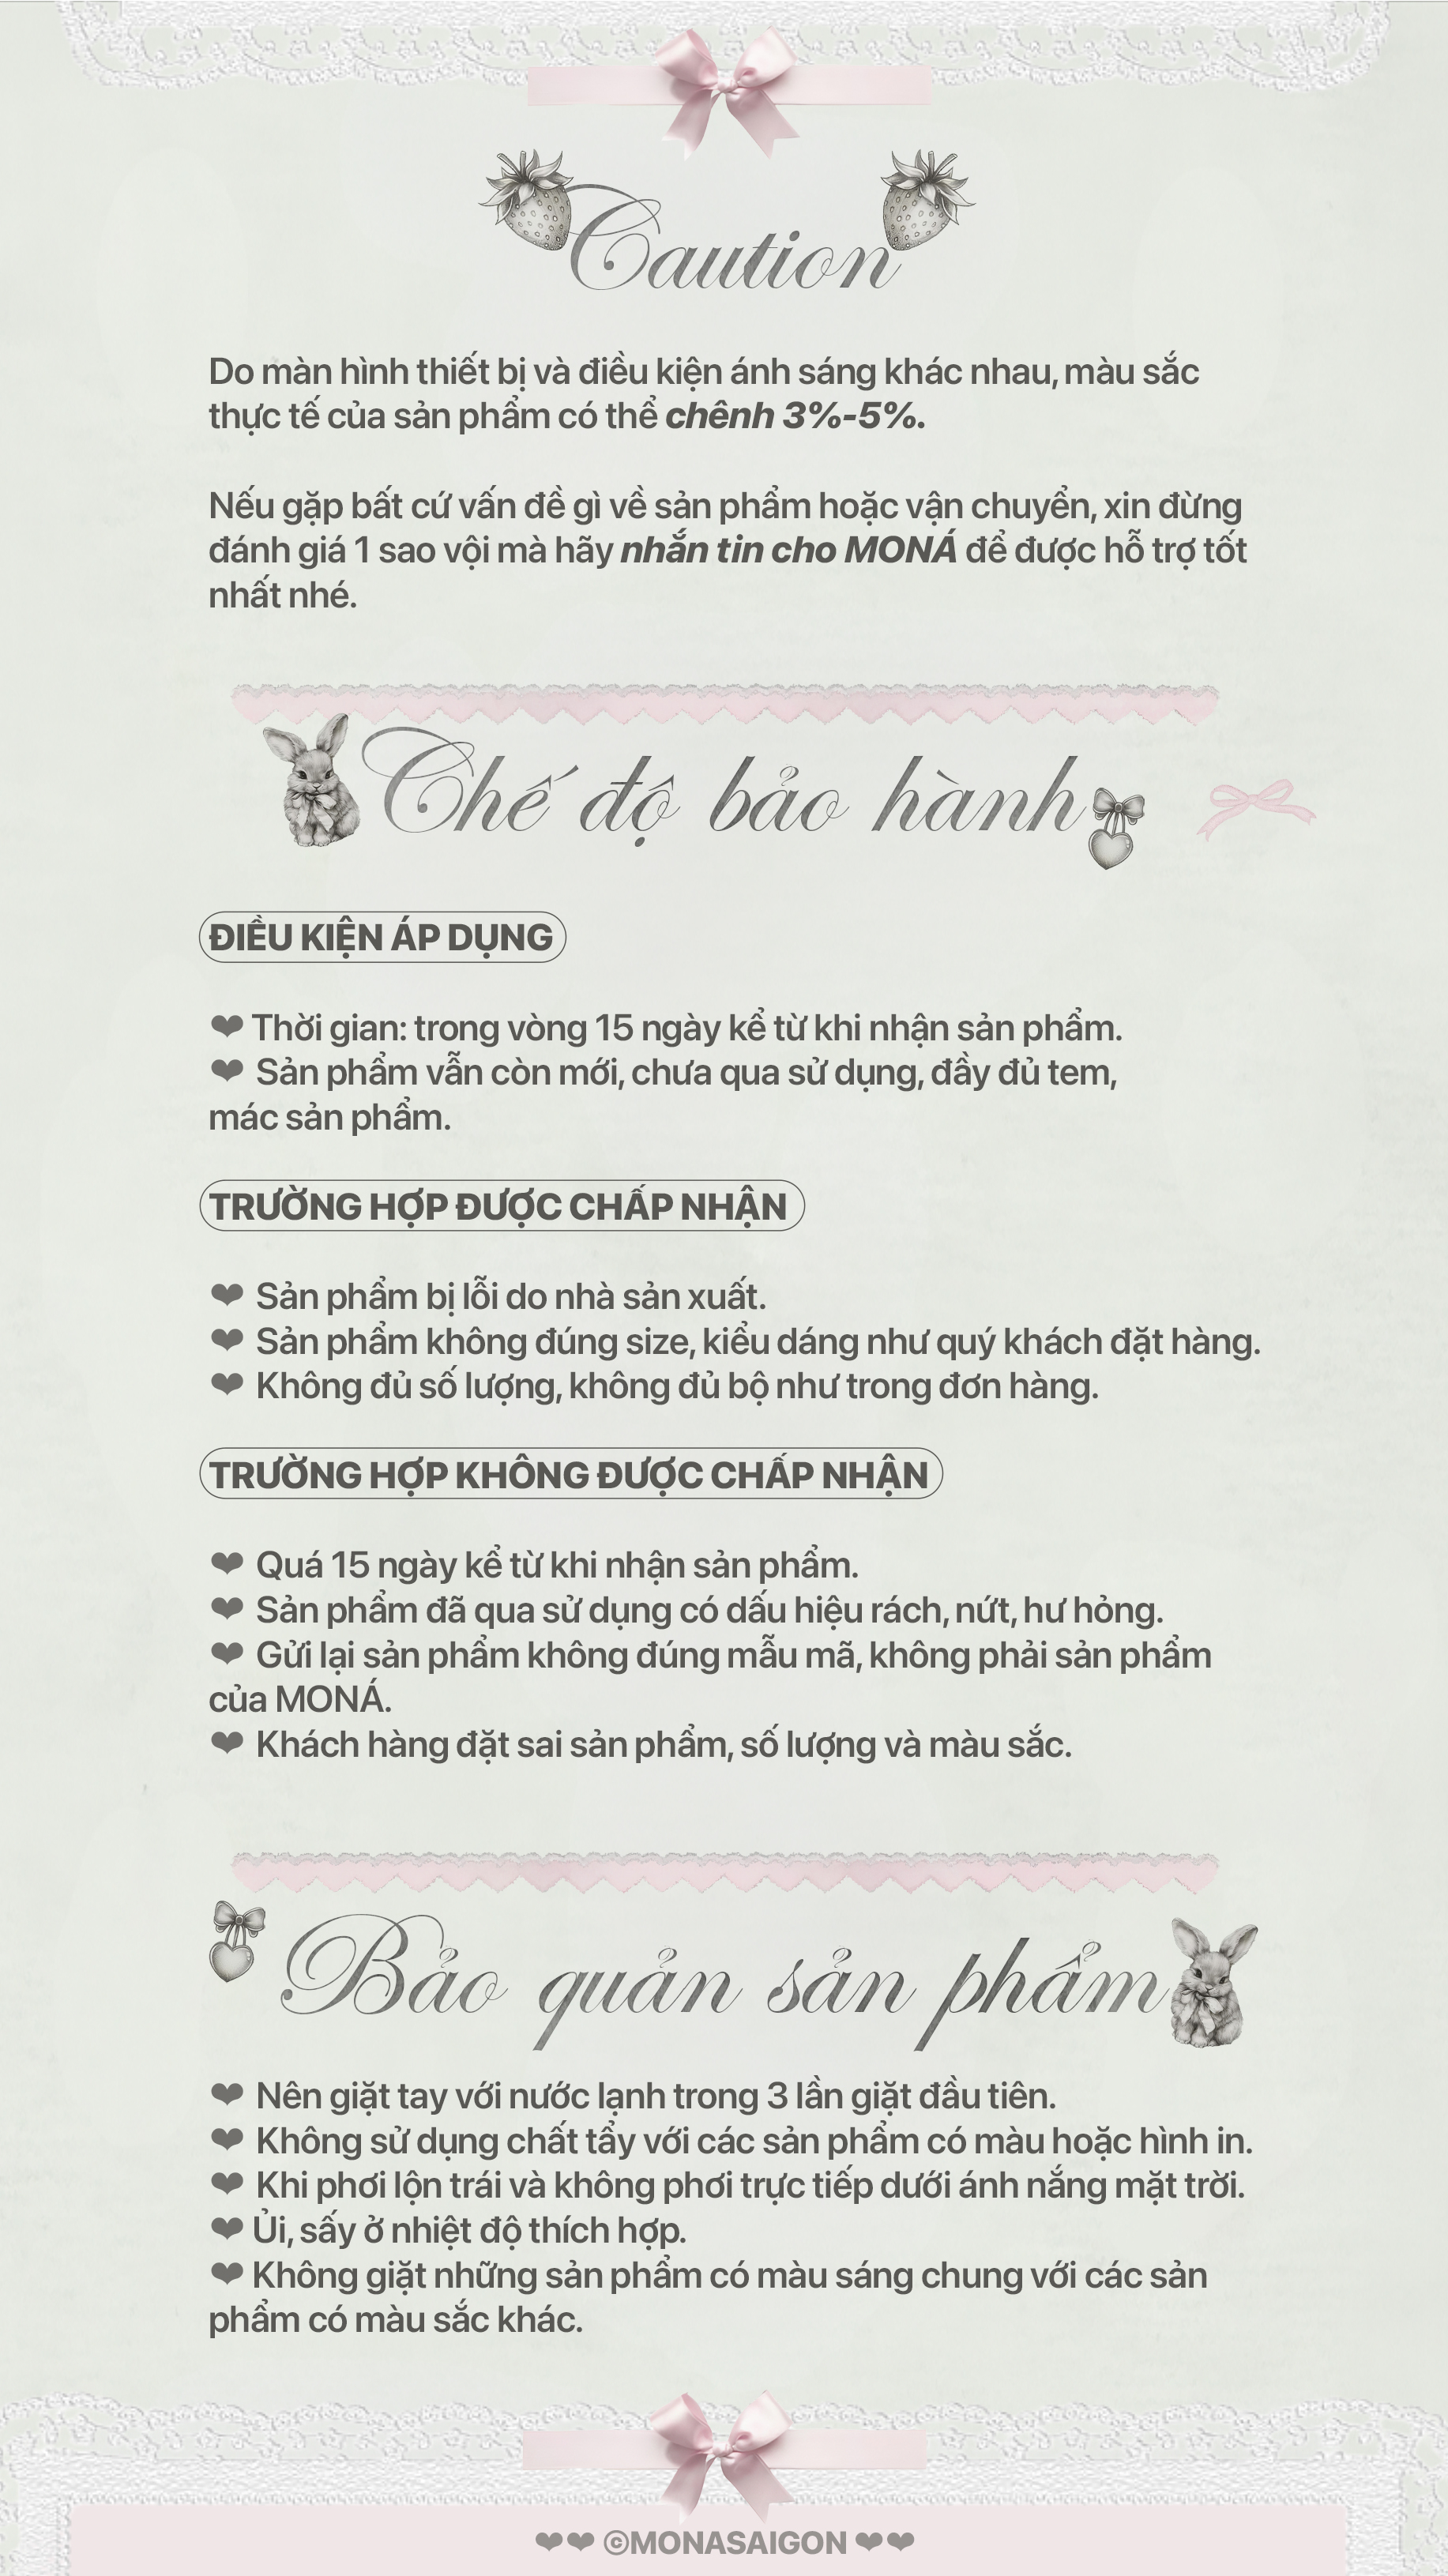 Caution
Do màn hình thiết bị và điều kiện ánh sáng khác nhau, màu sắc
thực tế của sản phẩm có thể chênh 3%-5%.
Nếu gặp bất cứ vấn đề gì về sản phẩm hoặc vận chuyển, xin đừng
đánh giá 1 sao vội mà hãy nhắn tin cho MONÁ để được hỗ trợ tốt
nhất nhé.
Chế độ bảo hành
ĐIỀU KIỆN ÁP DỤNG
❤ Thời gian: trong vòng 15 ngày kể từ khi nhận sản phẩm.
❤ Sản phẩm vẫn còn mới, chưa qua sử dụng, đầy đủ tem,
mác sản phẩm.
TRƯỜNG HỢP ĐƯỢC CHẤP NHẬN
❤ Sản phẩm bị lỗi do nhà sản xuất.
❤ Sản phẩm không đúng size, kiểu dáng như quý khách đặt hàng.
❤ Không đủ số lượng, không đủ bộ như trong đơn hàng.
TRƯỜNG HỢP KHÔNG ĐƯỢC CHẤP NHẬN
❤ Quá 15 ngày kể từ khi nhận sản phẩm.
❤ Sản phẩm đã qua sử dụng có dấu hiệu rách, nứt, hư hỏng.
❤ Gửi lại sản phẩm không đúng mẫu mã, không phải sản phẩm
của MONÁ.
❤ Khách hàng đặt sai sản phẩm, số lượng và màu sắc.
Bảo quản sản phẩm
❤ Nên giặt tay với nước lạnh trong 3 lần giặt đầu tiên.
❤ Không sử dụng chất tẩy với các sản phẩm có màu hoặc hình in.
❤ Khi phơi lộn trái và không phơi trực tiếp dưới ánh nắng mặt trời.
❤ Ủi, sấy ở nhiệt độ thích hợp.
❤ Không giặt những sản phẩm có màu sáng chung với các sản
phẩm có màu sắc khác.
❤❤ ©MONASAIGON ❤❤